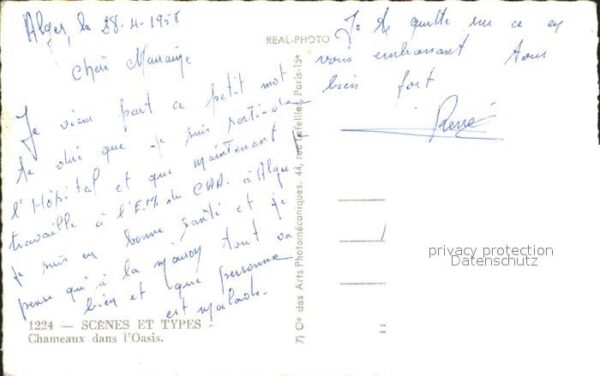 Alger, le 28-4-1958
Chère Maman
Je viens par ce petit mot
te dire que je suis sorti de
l'Hôpital et que maintenant je
travaille à l'E.M. du CAA. à Alger
Je suis en bonne santé et je
pense qu'à la maison tout va
bien et que personne
est malade.
Je te quitte sur ce en
vous embrassant tous
bien fort
René
REAL-PHOTO
Cie des Arts Photomécaniques, 44, rue Letellier, Paris-15e
1224 — SCÈNES ET TYPES -
Chameaux dans l'Oasis.
privacy protection
Datenschutz